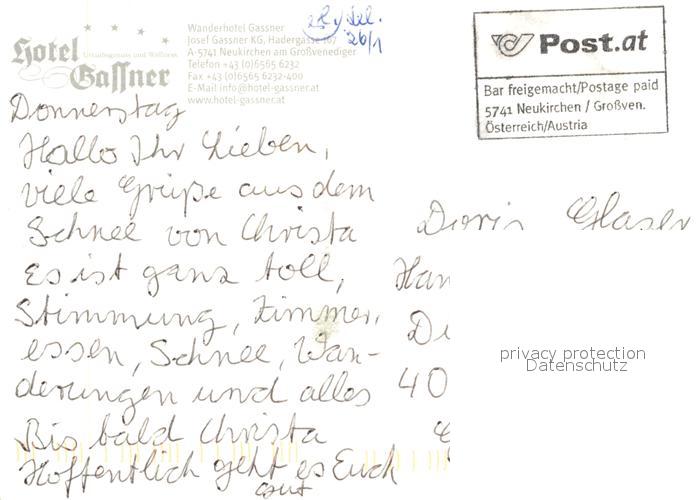 Hotel
Gassner
Urlaubsgenuss und Wellness
Wanderhotel Gassner
Josef Gassner KG, Hadergasse 167
A-5741 Neukirchen am Großvenediger
Telefon +43 (0)6565 6232
Fax +43 (0)6565 6232-400
E-Mail info@hotel-gassner.at
www.hotel-gassner.at
26/1
Post.at
Bar freigemacht/Postage paid
5741 Neukirchen / Großven.
Österreich/Austria
Donnerstag
Hallo Ihr Lieben,
viele Grüße aus dem
Schnee von Christa
Es ist ganz toll,
Stimmung, Zimmer,
essen, Schnee, Wan-
derungen und alles
Bis bald Christa
Hoffentlich geht es Euch
gut
Doris Glaser
Han
Di
40
privacy protection
Datenschutz